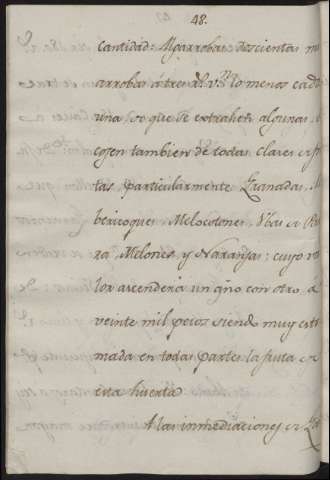 48.
cantidad: Algarrobas doscientas m
arrobas á tres rs. vn. lo menos cada
una, se que se extrahen algunas.
cogen tambien de todas clases de fru
tas particularmente Granadas, Al
bericoques Melocotones, Ubas de Pa
ra, Melones, y Naranjas: cuyo va
lor ascenderá un año con otro á
veinte mil pesos siendo muy esti
mada en todas partes la fruta de
esta huerta
A las inmediaciones de